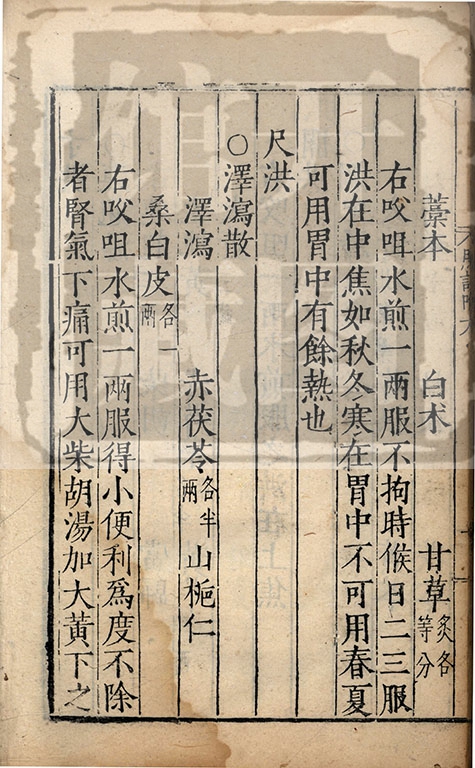 藁本 白术 甘草炙各等分
右㕮咀水煎一兩服不拘時候日二三服
洪在中焦如秋冬寒在胃中不可用春夏
可用胃中有餘熱也
尺洪
○澤瀉散
澤瀉 赤茯苓各半兩 山梔仁
桑白皮各一兩
右㕮咀水煎一兩服得小便利爲度不除
者腎氣下痛可用大柴胡湯加大黃下之